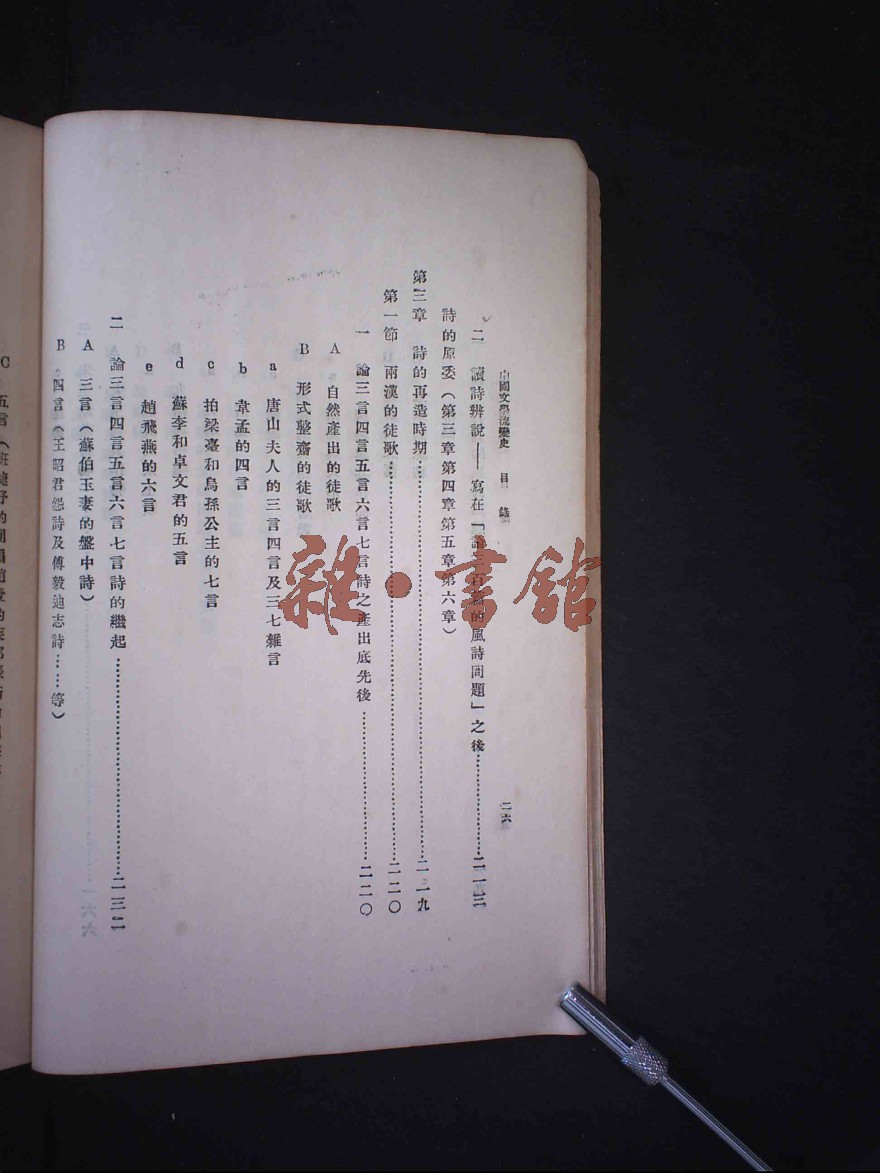 中國文學流變史 目錄 二六
二 讀詩辨說——寫在「論三百篇的風詩問題」之後……二一三
詩的原委（第三章第四章第五章第六章）
第三章 詩的再造時期……二一九
第一節 兩漢的徒歌……二二〇
一 論三言四言五言六言七言詩之產出底先後……二二〇
A 自然產出的徒歌
B 形式整齋的徒歌
a 唐山夫人的三言四言及三七雜言
b 韋孟的四言
c 拍梁臺和烏孫公主的七言
d 蘇李和卓文君的五言
e 趙飛燕的六言
二 論三言四言五言六言七言詩的繼起……二三二
A 三言（蘇伯玉妻的盤中詩）
B 四言（王昭君怨詩及傅毅迪志詩……等）
C 五言（班婕妤的
雜·書館